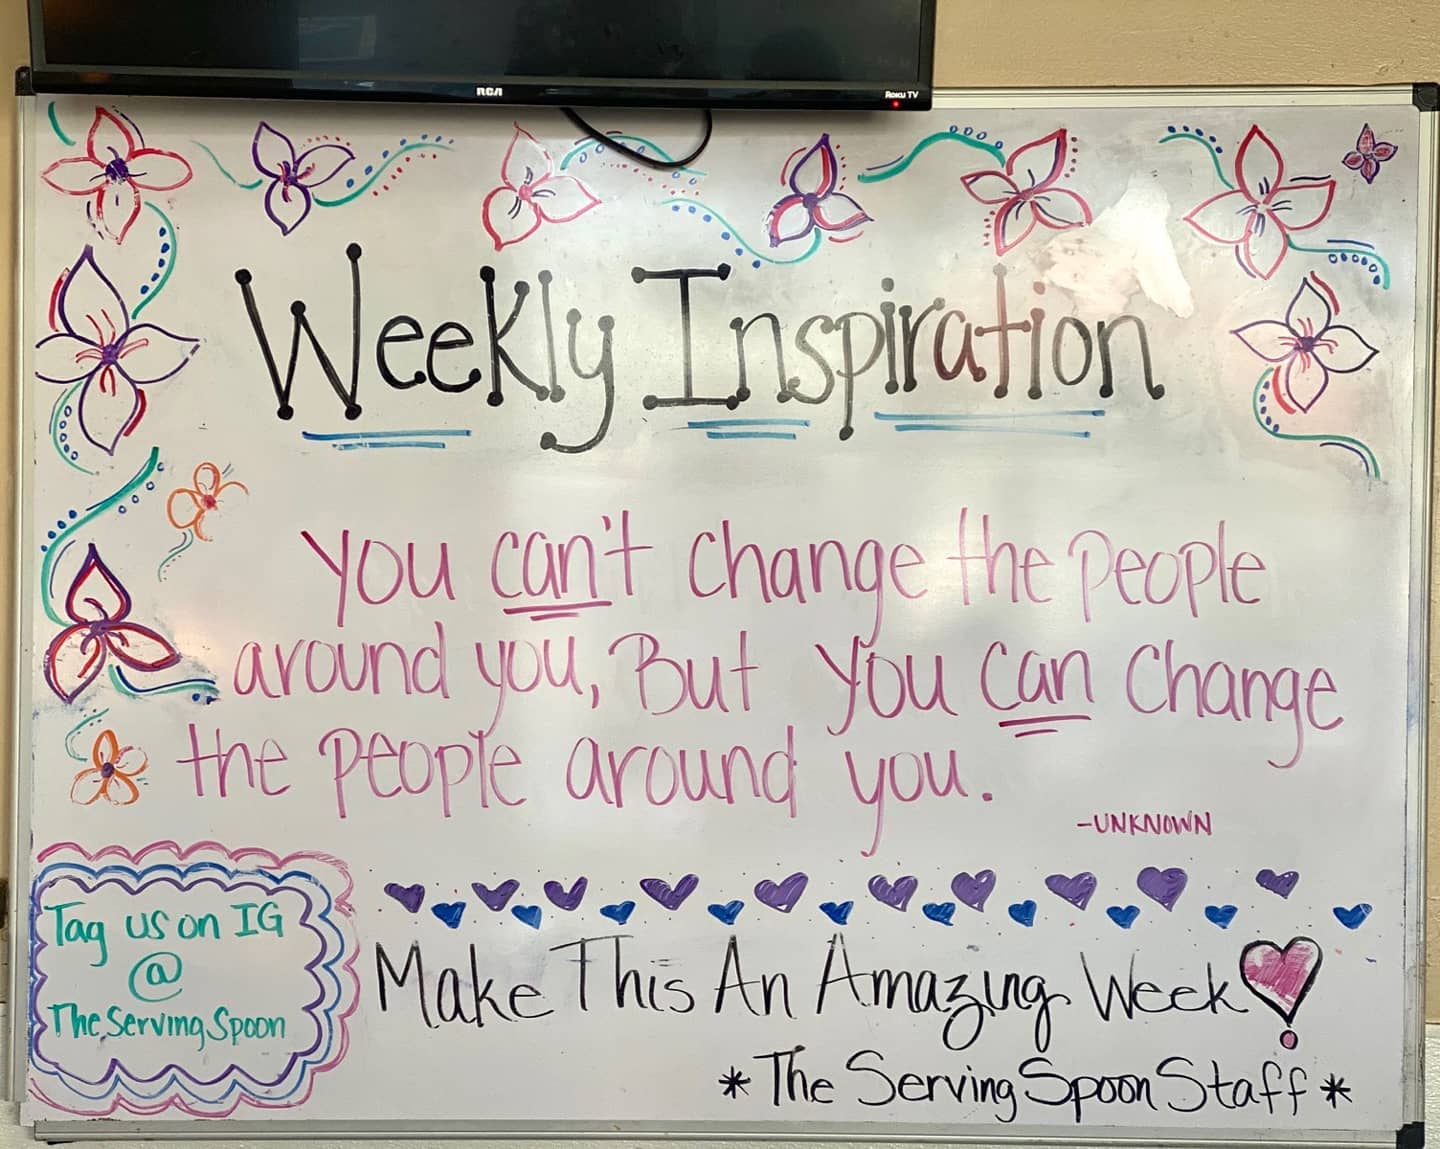 RCA
Roku TV
Weekly Inspiration
You can't change the people
around you, But you can change
the people around you.
-UNKNOWN
Tag us on IG
@
TheServingSpoon
Make This An Amazing Week!
*The Serving Spoon Staff*